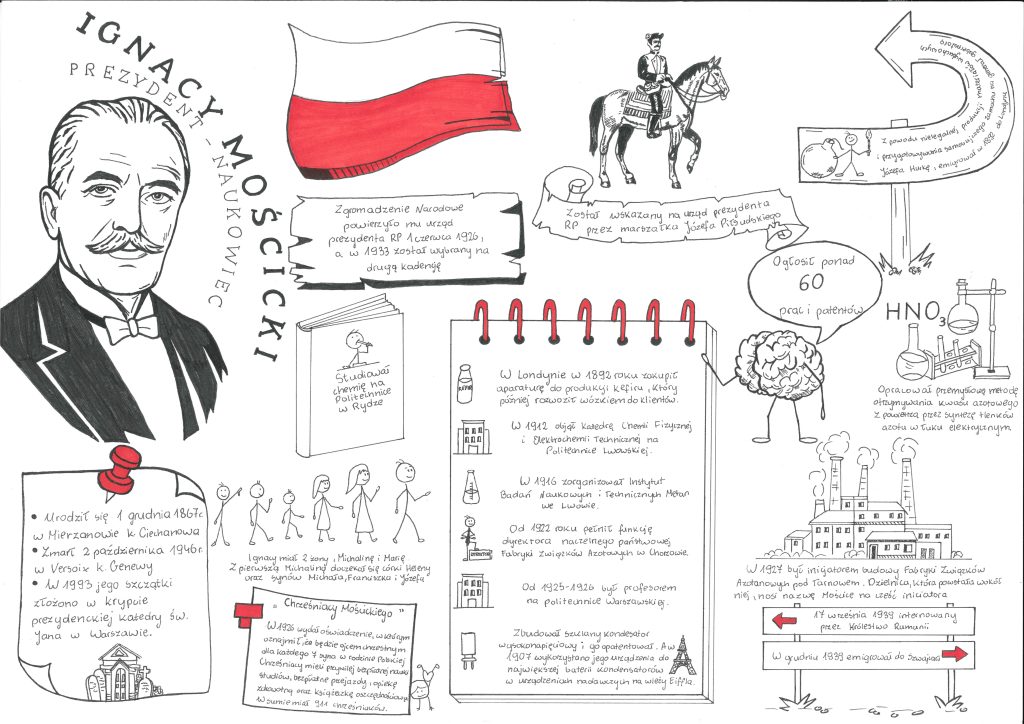 IGNACY MOŚCICKI
PREZYDENT - NAUKOWIEC
Zgromadzenie Narodowe
powierzyło mu urząd
prezydenta RP 1 czerwca 1926,
a w 1933 został wybrany na
drugą kadencję
Został wskazany na urząd prezydenta
RP przez marszałka Józefa Piłsudskiego
Z powodu nielegalnej produkcji materiałów wybuchowych
i przygotowywania samobójczego zamachu na generał gubernatora
Józefa Hurkę, emigrował w 1892 do Londynu
Studiował
chemię na
Politechnice
w Rydze
Ogłosił ponad
60
prac i patentów
HNO3
Opracował przemysłową metodę
otrzymywania kwasu azotowego
z powietrza przez syntezę tlenków
azotu w łuku elektrycznym
W Londynie w 1892 roku zakupił
aparaturę do produkcji kefiru, który
później rozwoził wózkiem do klientów.
W 1912 objął Katedrę Chemii Fizycznej
i Elektrochemii Technicznej na
Politechnice Lwowskiej.
W 1916 zorganizował Instytut
Badań Naukowych i Technicznych Metan
we Lwowie.
Od 1922 roku pełnił funkcję
dyrektora naczelnego państwowej
Fabryki Związków Azotowych w Chorzowie.
Od 1925-1926 był profesorem
na politechnice Warszawskiej.
Zbudował szklany kondesator
wysokonapięciowy i go opatentował. A w
1907 wykorzystano jego urządzenia do
największej baterii kondensatorów
w urządzeniach nadawczych na wieży Eiffla.
• Urodził się 1 grudnia 1867r.
w Mierzanowie k. Ciechanowa
• Zmarł 2 października 1946r.
w Versoix k. Genewy
• W 1993 jego szczątki
złożono w krypcie
prezydenckiej katedry św.
Jana w Warszawie.
Ignacy miał 2 żony, Michalinę i Marię
Z pierwszą Michaliną doczekał się córki Heleny
oraz synów Michała, Franciszka i Józefa
" Chrześniacy Mościckiego "
W 1926 wydał oświadczenie, w którym
oznajmił, że będzie ojcem chrzestnym
dla każdego 7 syna w rodzinie Polskiej
Chrześniacy mieli przywilej bezpłatnej nauki
studiów, bezpłatne przejazdy i opiekę
zdrowotną oraz książeczkę oszczędnościową
W sumie miał 911 chrześniaków.
W 1927 był inicjatorem budowy Fabryki Związków
Azotanowych pod Tarnowem. Dzielnica, która powstała wokół
niej, nosi nazwę Mościce na cześć inicjatora
17 września 1939 internowany
przez Królestwo Rumunii
W grudniu 1939 emigrował do Szwajcarii